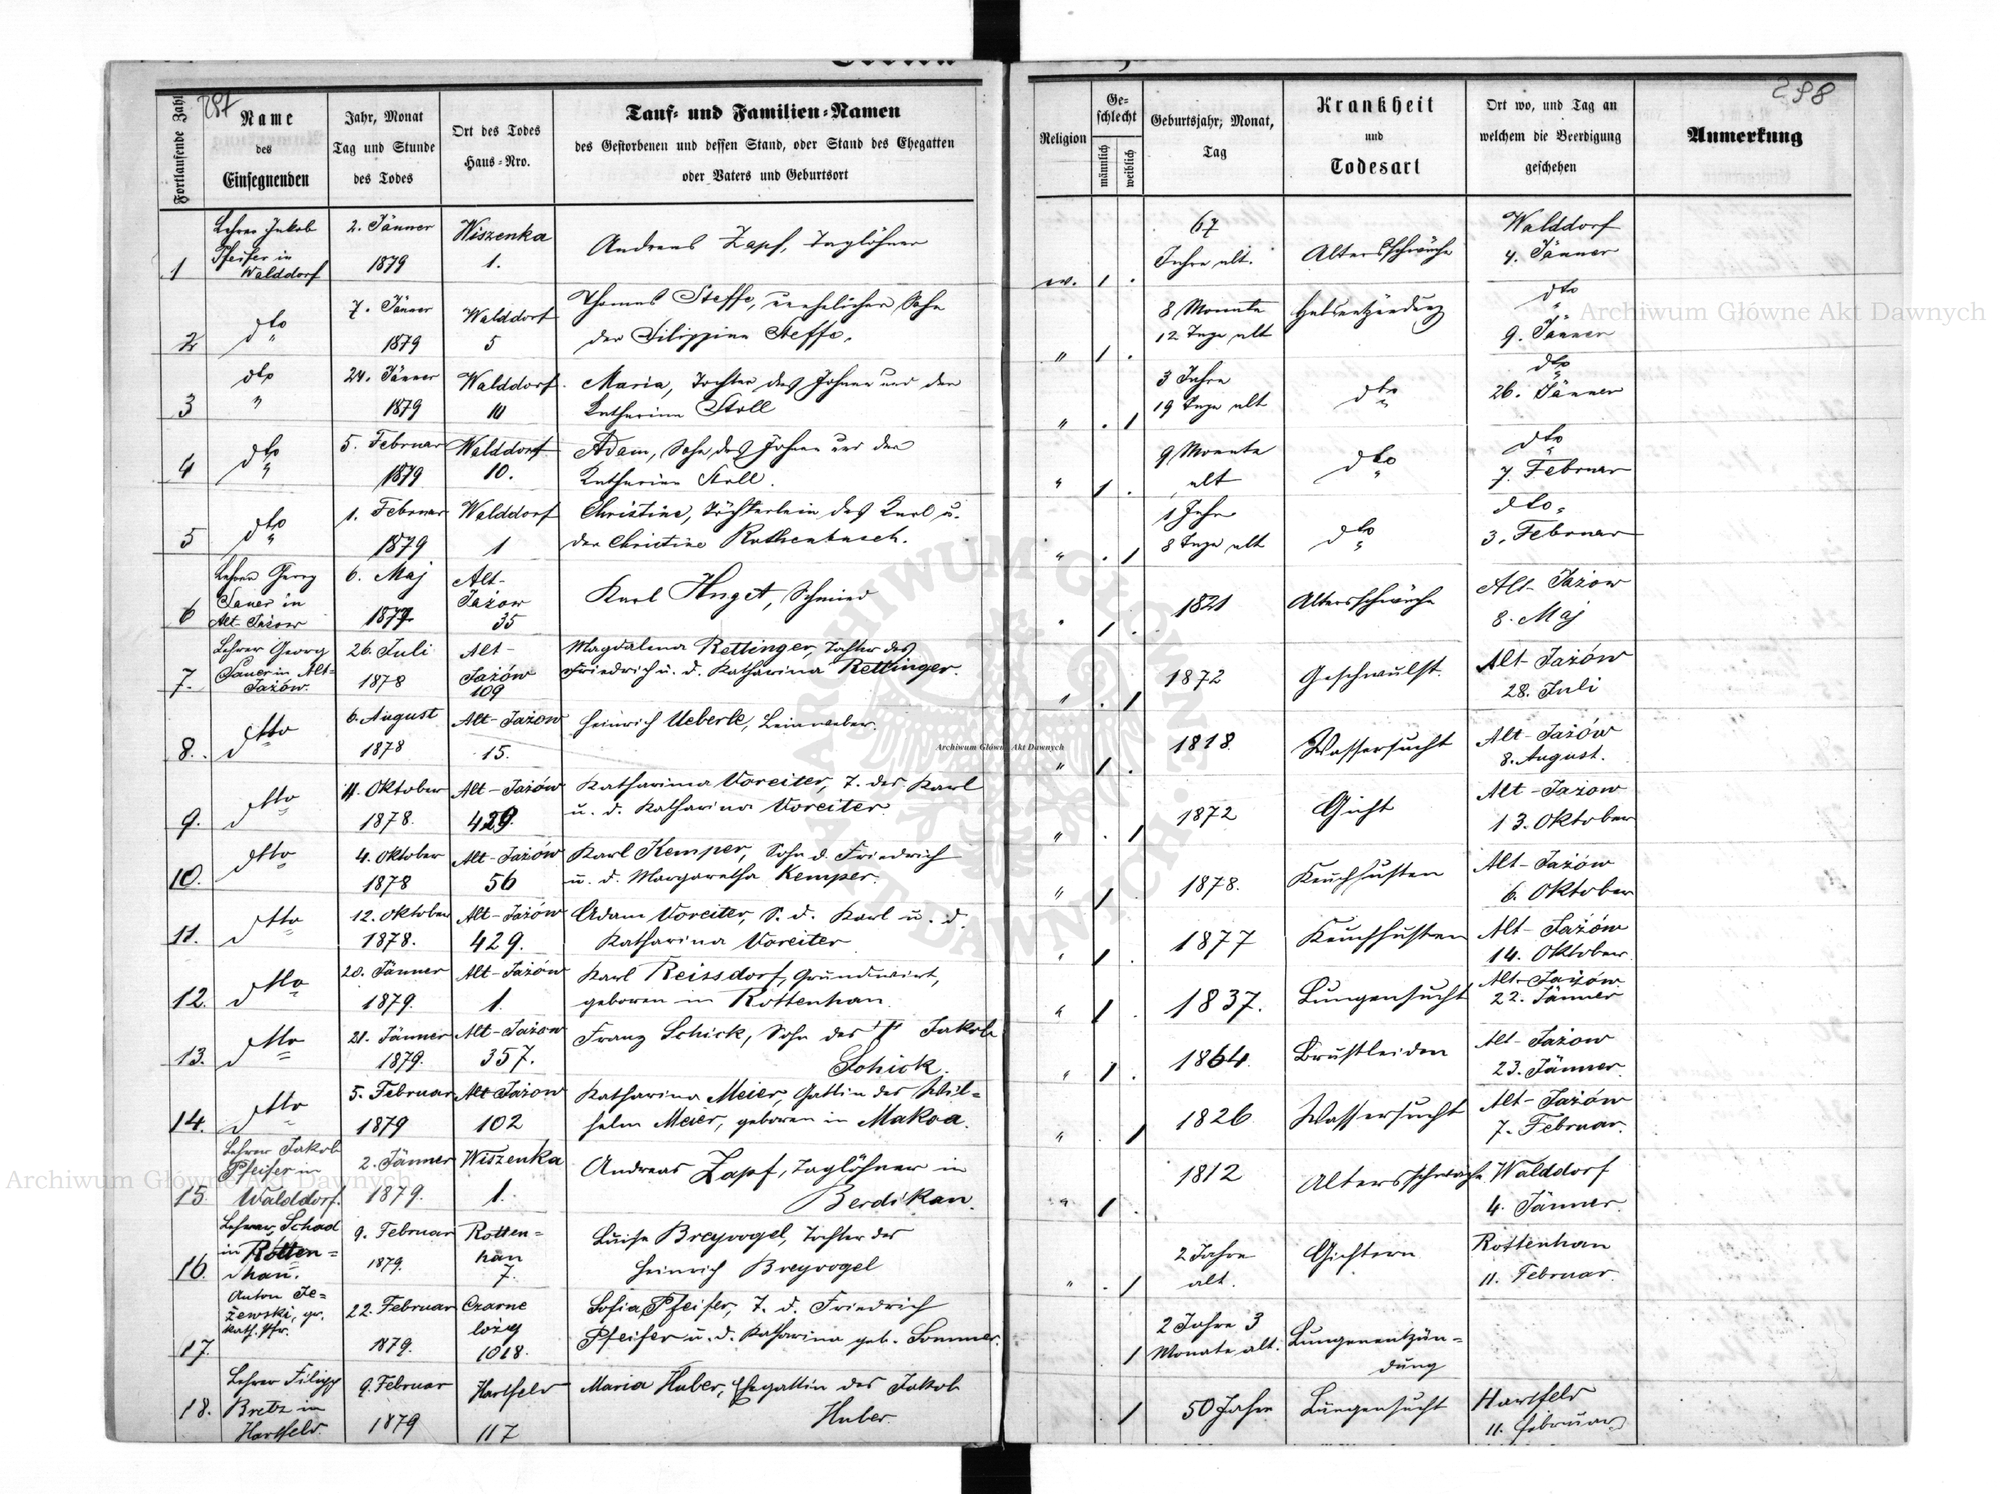 297
298
Fortlaufende Zahl
Name
des
Einsegnenden
Jahr, Monat
Tag und Stunde
des Todes
Ort des Todes
Haus-Nro.
Tauf- und Familien-Namen
des Gestorbenen und dessen Stand, oder Stand des Ehegatten
oder Vaters und Geburtsort
Religion
Geschlecht
männlich
weiblich
Geburtsjahr, Monat,
Tag
Krankheit
und
Todesart
Ort wo, und Tag an
welchem die Beerdigung
geschehen
Anmerkung
1
Lehrer Jakob
Pfeifer in
Walddorf
2. Jänner
1879
Wiszenka
1.
Andreas Zapf, Taglöhner
ev. 1 .
67
Jahre alt.
Altersschwäche
Walddorf
4. Jänner
2
dto
7. Jänner
1879
Walddorf
5
Thomas Steffe, unehelicher Sohn
der Filippine Steffe.
" 1 .
8 Monate
12 Tage alt
Halsentzündung
dto
9. Jänner
3
dto
24. Jänner
1879
Walddorf
10
Maria, Tochter des Johann und der
Katharina Stoll
" . 1
3 Jahre
19 Tage alt
dto
dto
26. Jänner
4
dto
5. Februar
1879
Walddorf
10.
Adam, Sohn des Johann und der
Katharina Stoll.
" 1 .
9 Monate
alt
dto
dto
7. Februar
5
dto
1. Februar
1879
Walddorf
1
Christine, Töchterlein des Karl u.
der Christine Rothenbusch.
" . 1
1 Jahr
8 Tage alt
dto
dto
3. Februar
6
Lehrer Georg
Sauer in
Alt-Jażow
6. Maj
1879
Alt-
Jażow
35
Karl Huget, Schmied
" 1 .
1821
Altersschwäche
Alt-Jażow
8. Maj
7.
Lehrer Georg
Sauer in Alt-
Jażów.
26. Juli
1878
Alt-
Jażów
109
Magdalena Rettinger, Tochter des
Friedrich u. d. Katharina Rettinger.
" . 1
1872
Geschwulst.
Alt-Jażów
28. Juli
8.
dtto
6. August
1878
Alt-Jażow
15.
Heinrich Ueberle, Leinweber.
" 1 .
1818.
Wassersucht
Alt-Jażów
8. August.
9.
dtto
11. Oktober
1878.
Alt-Jażów
429.
Katharina Voreiter, T. des Karl
u. d. Katharina Voreiter.
" . 1
1872
Gicht
Alt-Jażow
13. Oktober
10.
dtto
4. Oktober
1878
Alt-Jażów
56
Karl Kemper, Sohn d. Friedrich
u. d. Margaretha Kemper.
" 1 .
1878.
Keuchhusten
Alt-Jażów
6. Oktober
11.
dtto
12. Oktober
1878.
Alt-Jażów
429.
Adam Voreiter, S. d. Karl u. d.
Katharina Voreiter
" 1 .
1877
Keuchhusten
Alt-Jażów
14. Oktober.
12.
dtto
20. Jänner
1879.
Alt-Jażów
1.
Karl Reissdorf, Grundwirt,
geboren in Rottenhan.
" 1 .
1837.
Lungensucht
Alt-Jażów
22. Jänner
13.
dtto
21. Jänner
1879.
Alt-Jażow
357.
Franz Schick, Sohn des Jakob
Schick.
" 1 .
1864.
Brustleiden
Alt-Jażow
23. Jänner.
14.
dtto
5. Februar
1879
Alt Jażow
102
Katharina Meier, Gattin des Wil-
helm Meier, geboren in Makoa.
" . 1
1826
Wassersucht
Alt-Jażów
7. Februar.
15.
Lehrer Jakob
Pfeifer in
Walddorf.
2. Jänner
1879.
Wiszenka
1.
Andreas Zapf, Taglöhner in
Berdikau.
" 1 .
1812
Altersschwäche
Walddorf
4. Jänner.
16.
Lehrer Schad
in Rotten-
han.
9. Februar
1879.
Rotten-
han
7.
Luise Breyvogel, Tochter des
Heinrich Breyvogel
" . 1
2 Jahre
alt.
Gichtern
Rottenhan
11. Februar.
17.
Anton Je-
żewski, gr.
kath. Pfr.
22. Februar
1879.
Czarne
łozy
1018.
Sofia Pfeifer, T. d. Friedrich
Pfeifer u. d. Katharina geb. Sommer.
1
2 Jahre 3
Monate alt.
Lungenentzün-
dung
18.
Lehrer Filipp
Bretz in
Hartfeld.
9. Februar
1879
Hartfeld
117
Maria Huber, Ehegattin des Jakob
Huber.
1
50 Jahre
Lungensucht
Hartfeld
11. Februar
Archiwum Główne Akt Dawnych
Archiwum Główne Akt Dawnych
Archiwum Główne Akt Dawnych
ARCHIWUM GŁÓWNE AKT DAWNYCH